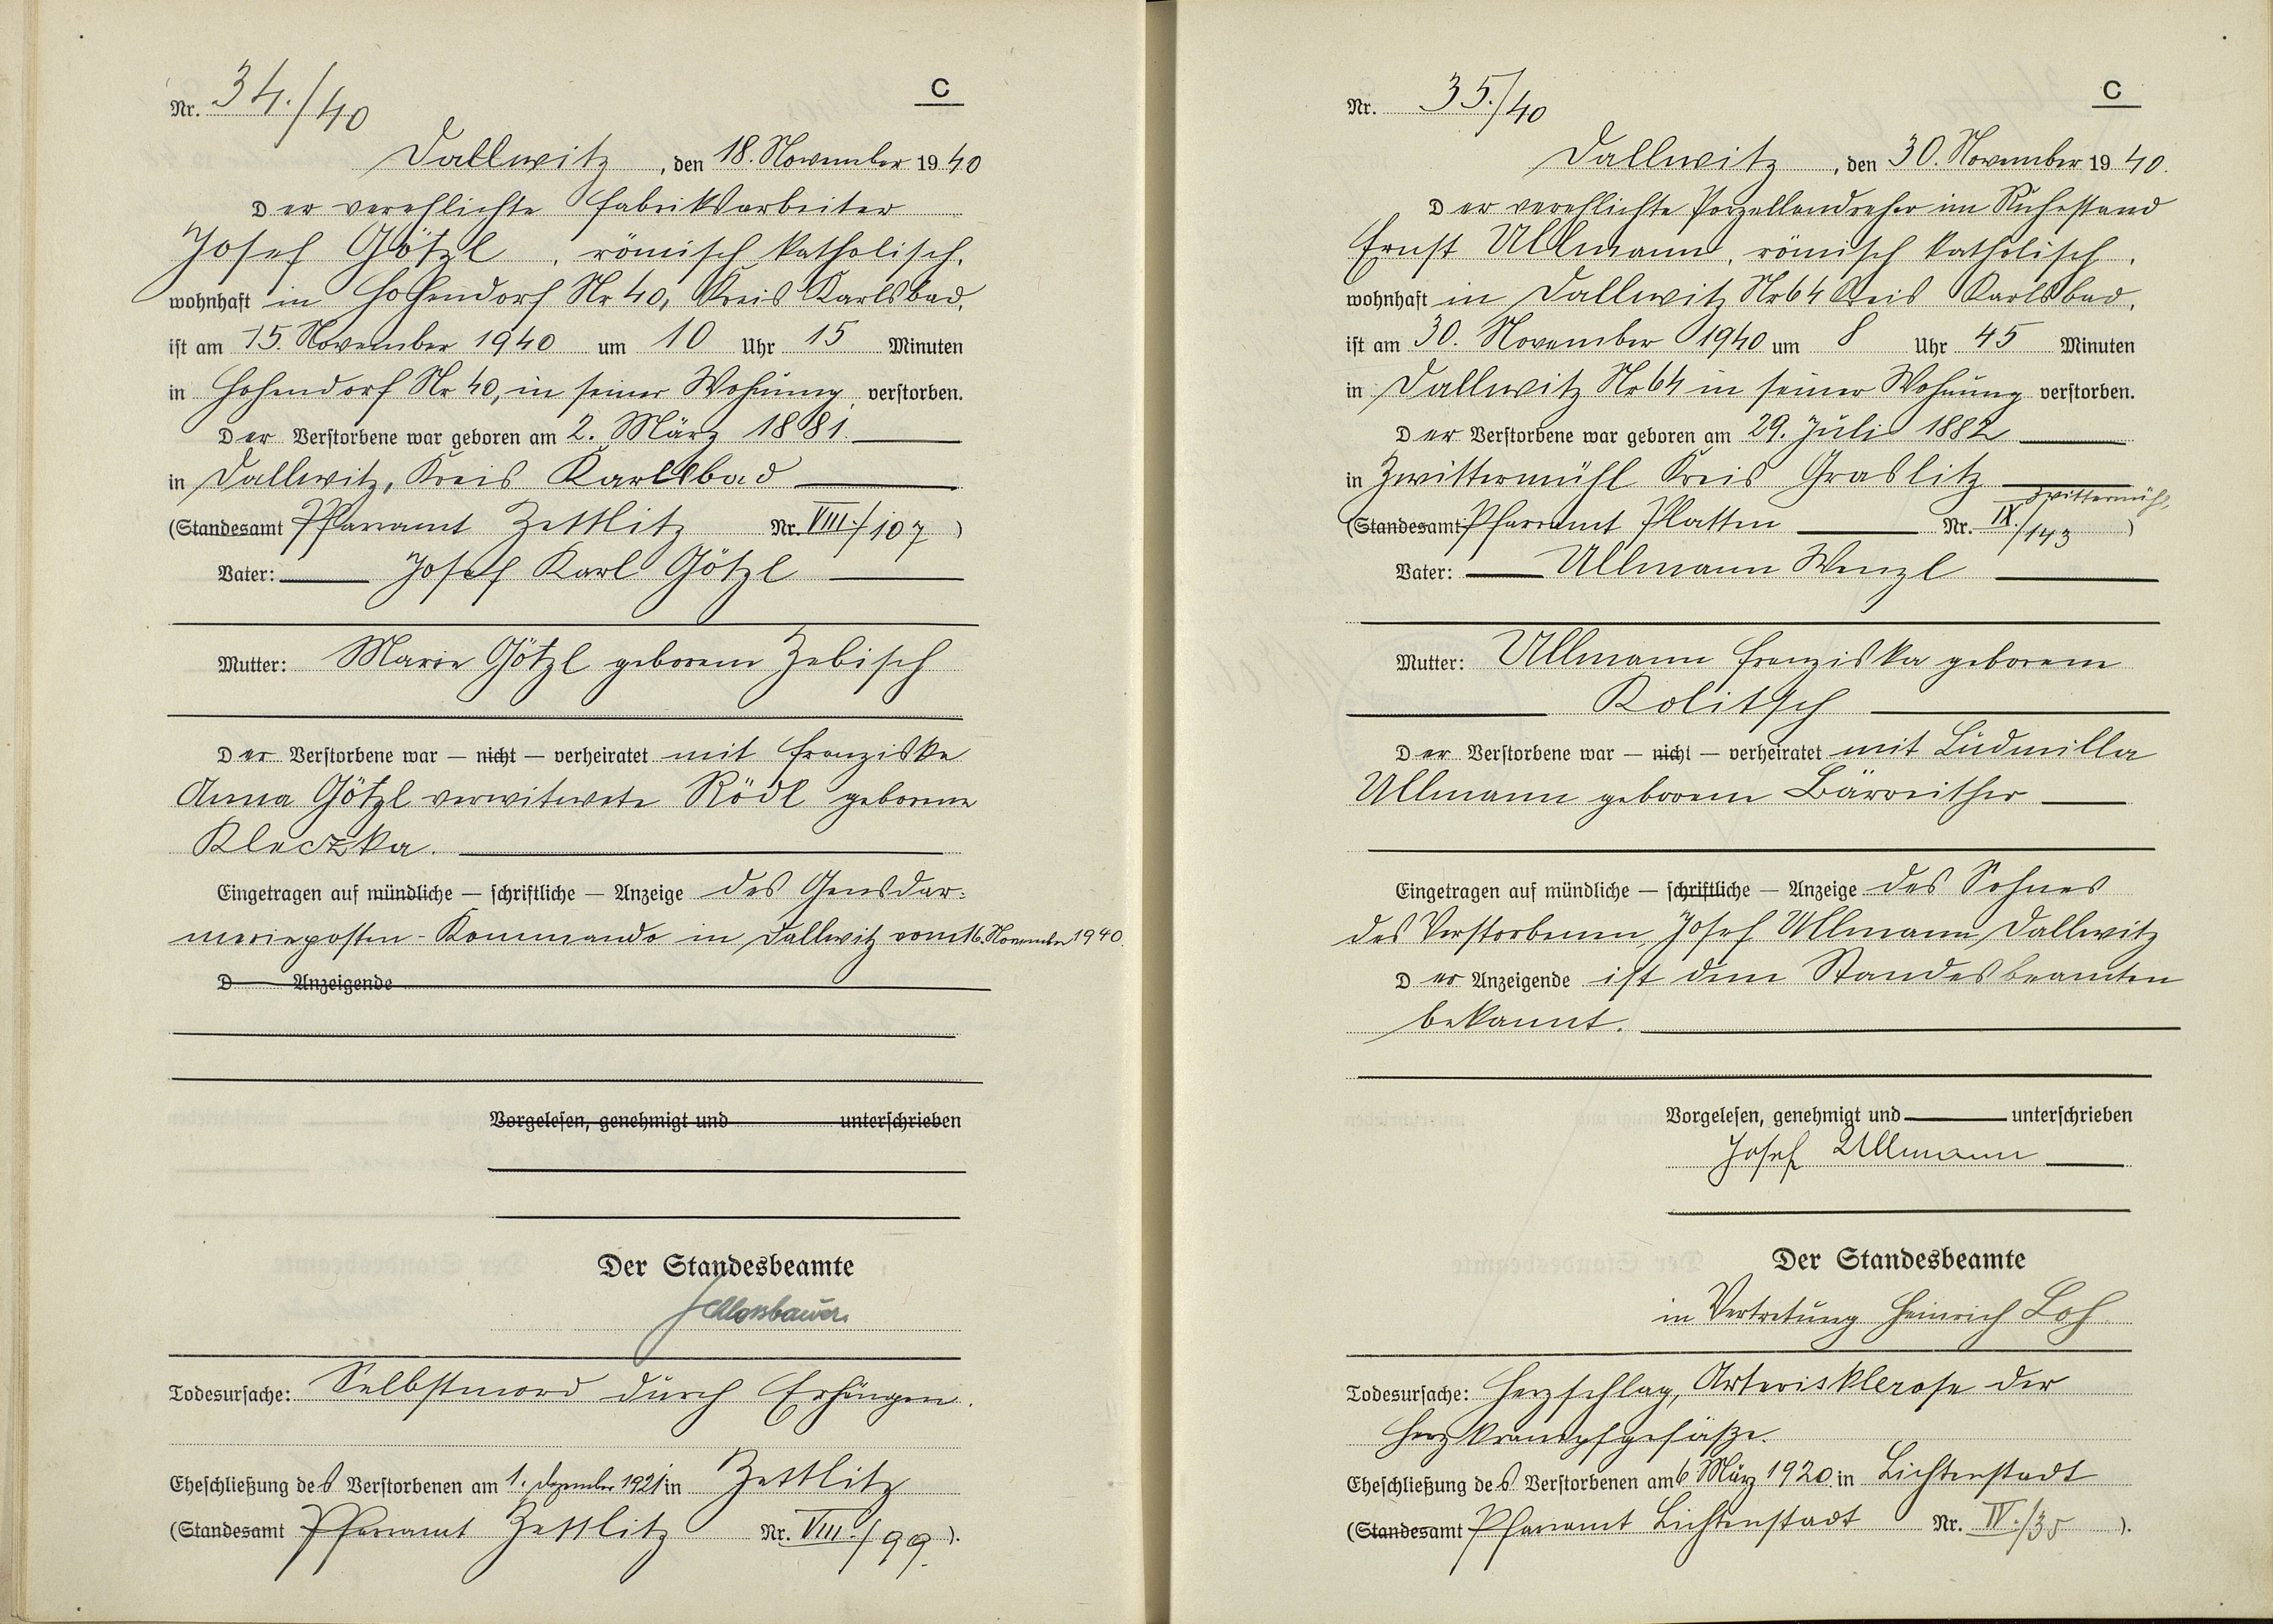 Nr. 34./40
C
Dallwitz, den 18. November 1940
Der verehlichte Fabriksarbeiter
Josef Götzl, römisch katholisch,
wohnhaft in Hohendorf Nr 40, Kreis Karlsbad,
ist am 15. November 1940 um 10 Uhr 15 Minuten
in Hohendorf Nr 40, in seiner Wohnung, verstorben.
Der Verstorbene war geboren am 2. März 1881.
in Dallwitz, Kreis Karlsbad
(Standesamt Pfarramt Zettlitz Nr. VIII./107)
Vater: Josef Karl Götzl
Mutter: Marie Götzl geborene Zebisch
Der Verstorbene war — nicht — verheiratet mit Franziska
Anna Götzl verwitwete Rödl geborene
Kleczka.
Eingetragen auf mündliche — schriftliche — Anzeige des Gensdar:
merieposten-Kommando in Dallwitz vom 16. November 1940.
D Anzeigende
Vorgelesen, genehmigt und unterschrieben
Der Standesbeamte
Schlossbauer
Todesursache: Selbstmord durch Erhängen.
Eheschließung des Verstorbenen am 1. Dezember 1921 in Zettlitz
(Standesamt Pfarramt Zettlitz Nr. VIII./99.).
Nr. 35./40
C
Dallwitz, den 30. November 1940.
Der verehlichte Porzellandreher im Ruhestand
Ernst Ullmann, römisch katholisch,
wohnhaft in Dallwitz Nr 64 Kreis Karlsbad,
ist am 30. November 1940 um 8 Uhr 45 Minuten
in Dallwitz Nr 64 in seiner Wohnung verstorben.
Der Verstorbene war geboren am 29. Juli 1882
in Zwittermühl Kreis Graslitz
Zwittermühl,
(Standesamt Pfarramt Platten Nr. IX./143)
Vater: Ullmann Wenzl
Mutter: Ullmann Franziska geborene
Kolitsch
Der Verstorbene war — nicht — verheiratet mit Ludmilla
Ullmann geborene Bärreither
Eingetragen auf mündliche — schriftliche — Anzeige des Sohnes
des Verstorbenen, Josef Ullmann, Dallwitz
Der Anzeigende ist dem Standesbeamten
bekannt.
Vorgelesen, genehmigt und unterschrieben
Josef Ullmann
Der Standesbeamte
in Vertretung Heinrich Loh
Todesursache: Herzschlag, Arterisklerose der
Herzkrampfgefäße.
Eheschließung des Verstorbenen am 6 März 1920. in Lichtenstadt
(Standesamt Pfarramt Lichtenstadt Nr. IV./35).